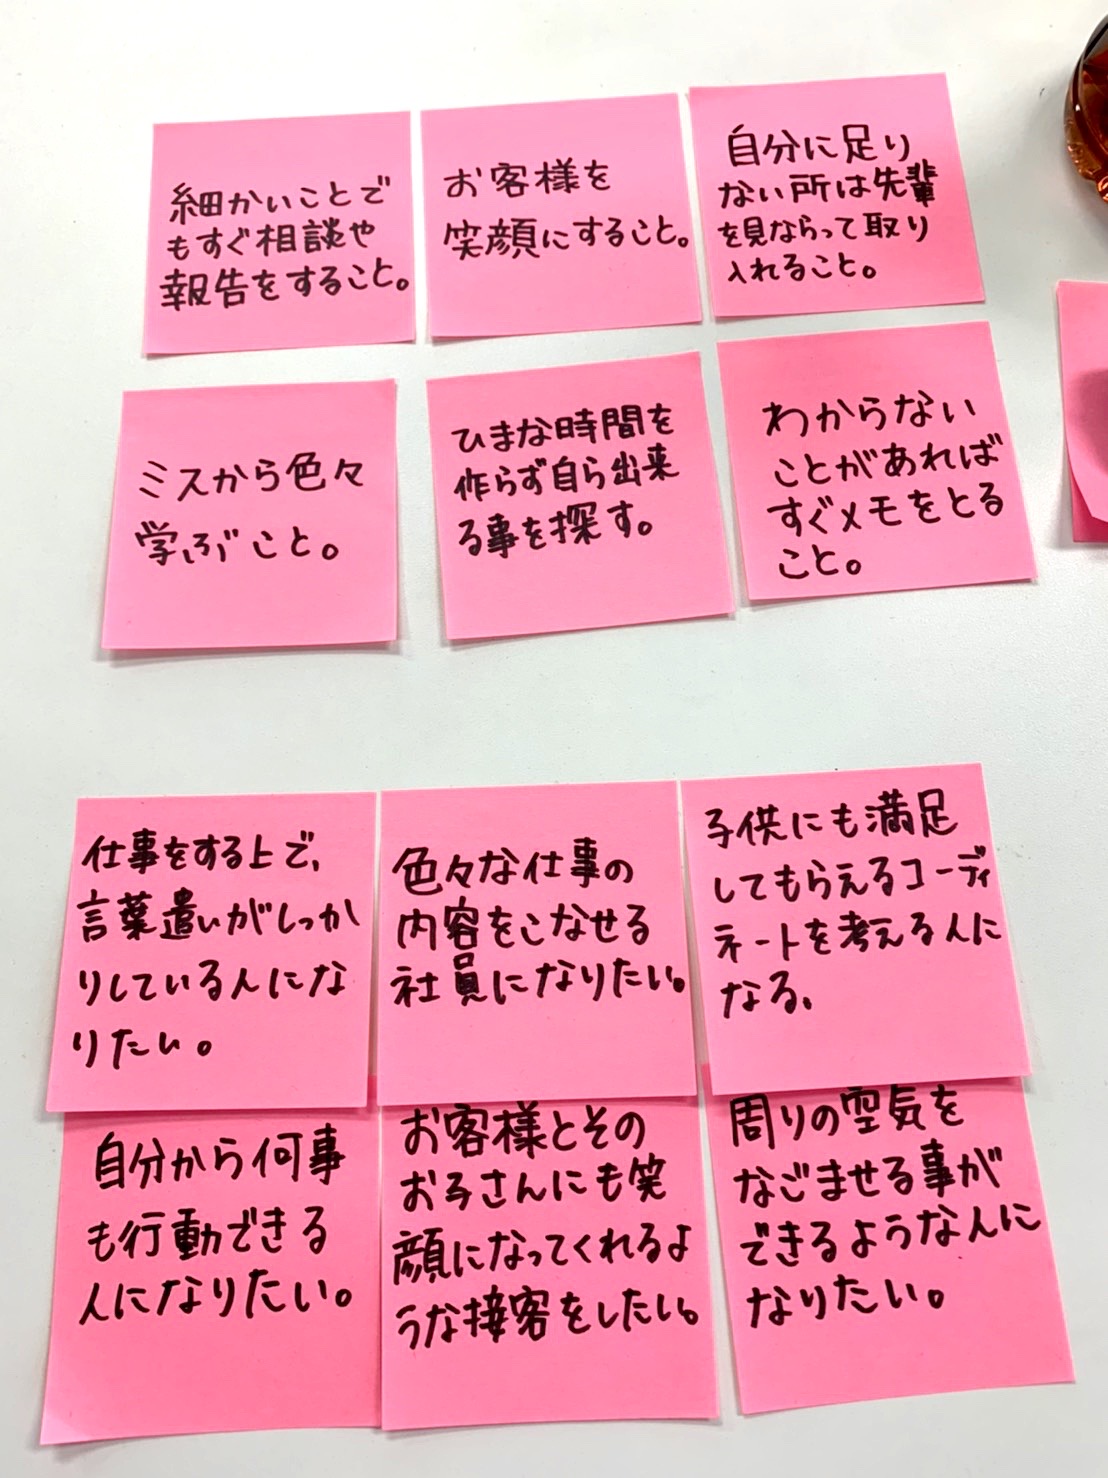 細かいことで
もすぐ相談や
報告をすること。
お客様を
笑顔にすること。
自分に足り
ない所は先輩
を見ならって取り
入れること。
ミスから色々
学ぶこと。
ひまな時間を
作らず自ら出来
る事を探す。
わからない
ことがあれば
すぐメモをとる
こと。
仕事をする上で、
言葉遣いがしっか
りしている人にな
りたい。
色々な仕事の
内容をこなせる
社員になりたい。
子供にも満足
してもらえるコーディ
ネートを考える人に
なる。
自分から何事
も行動できる
人になりたい。
お客様とその
お子さんにも笑
顔になってくれるよ
うな接客をしたい。
周りの空気を
なごませる事が
できるような人に
なりたい。